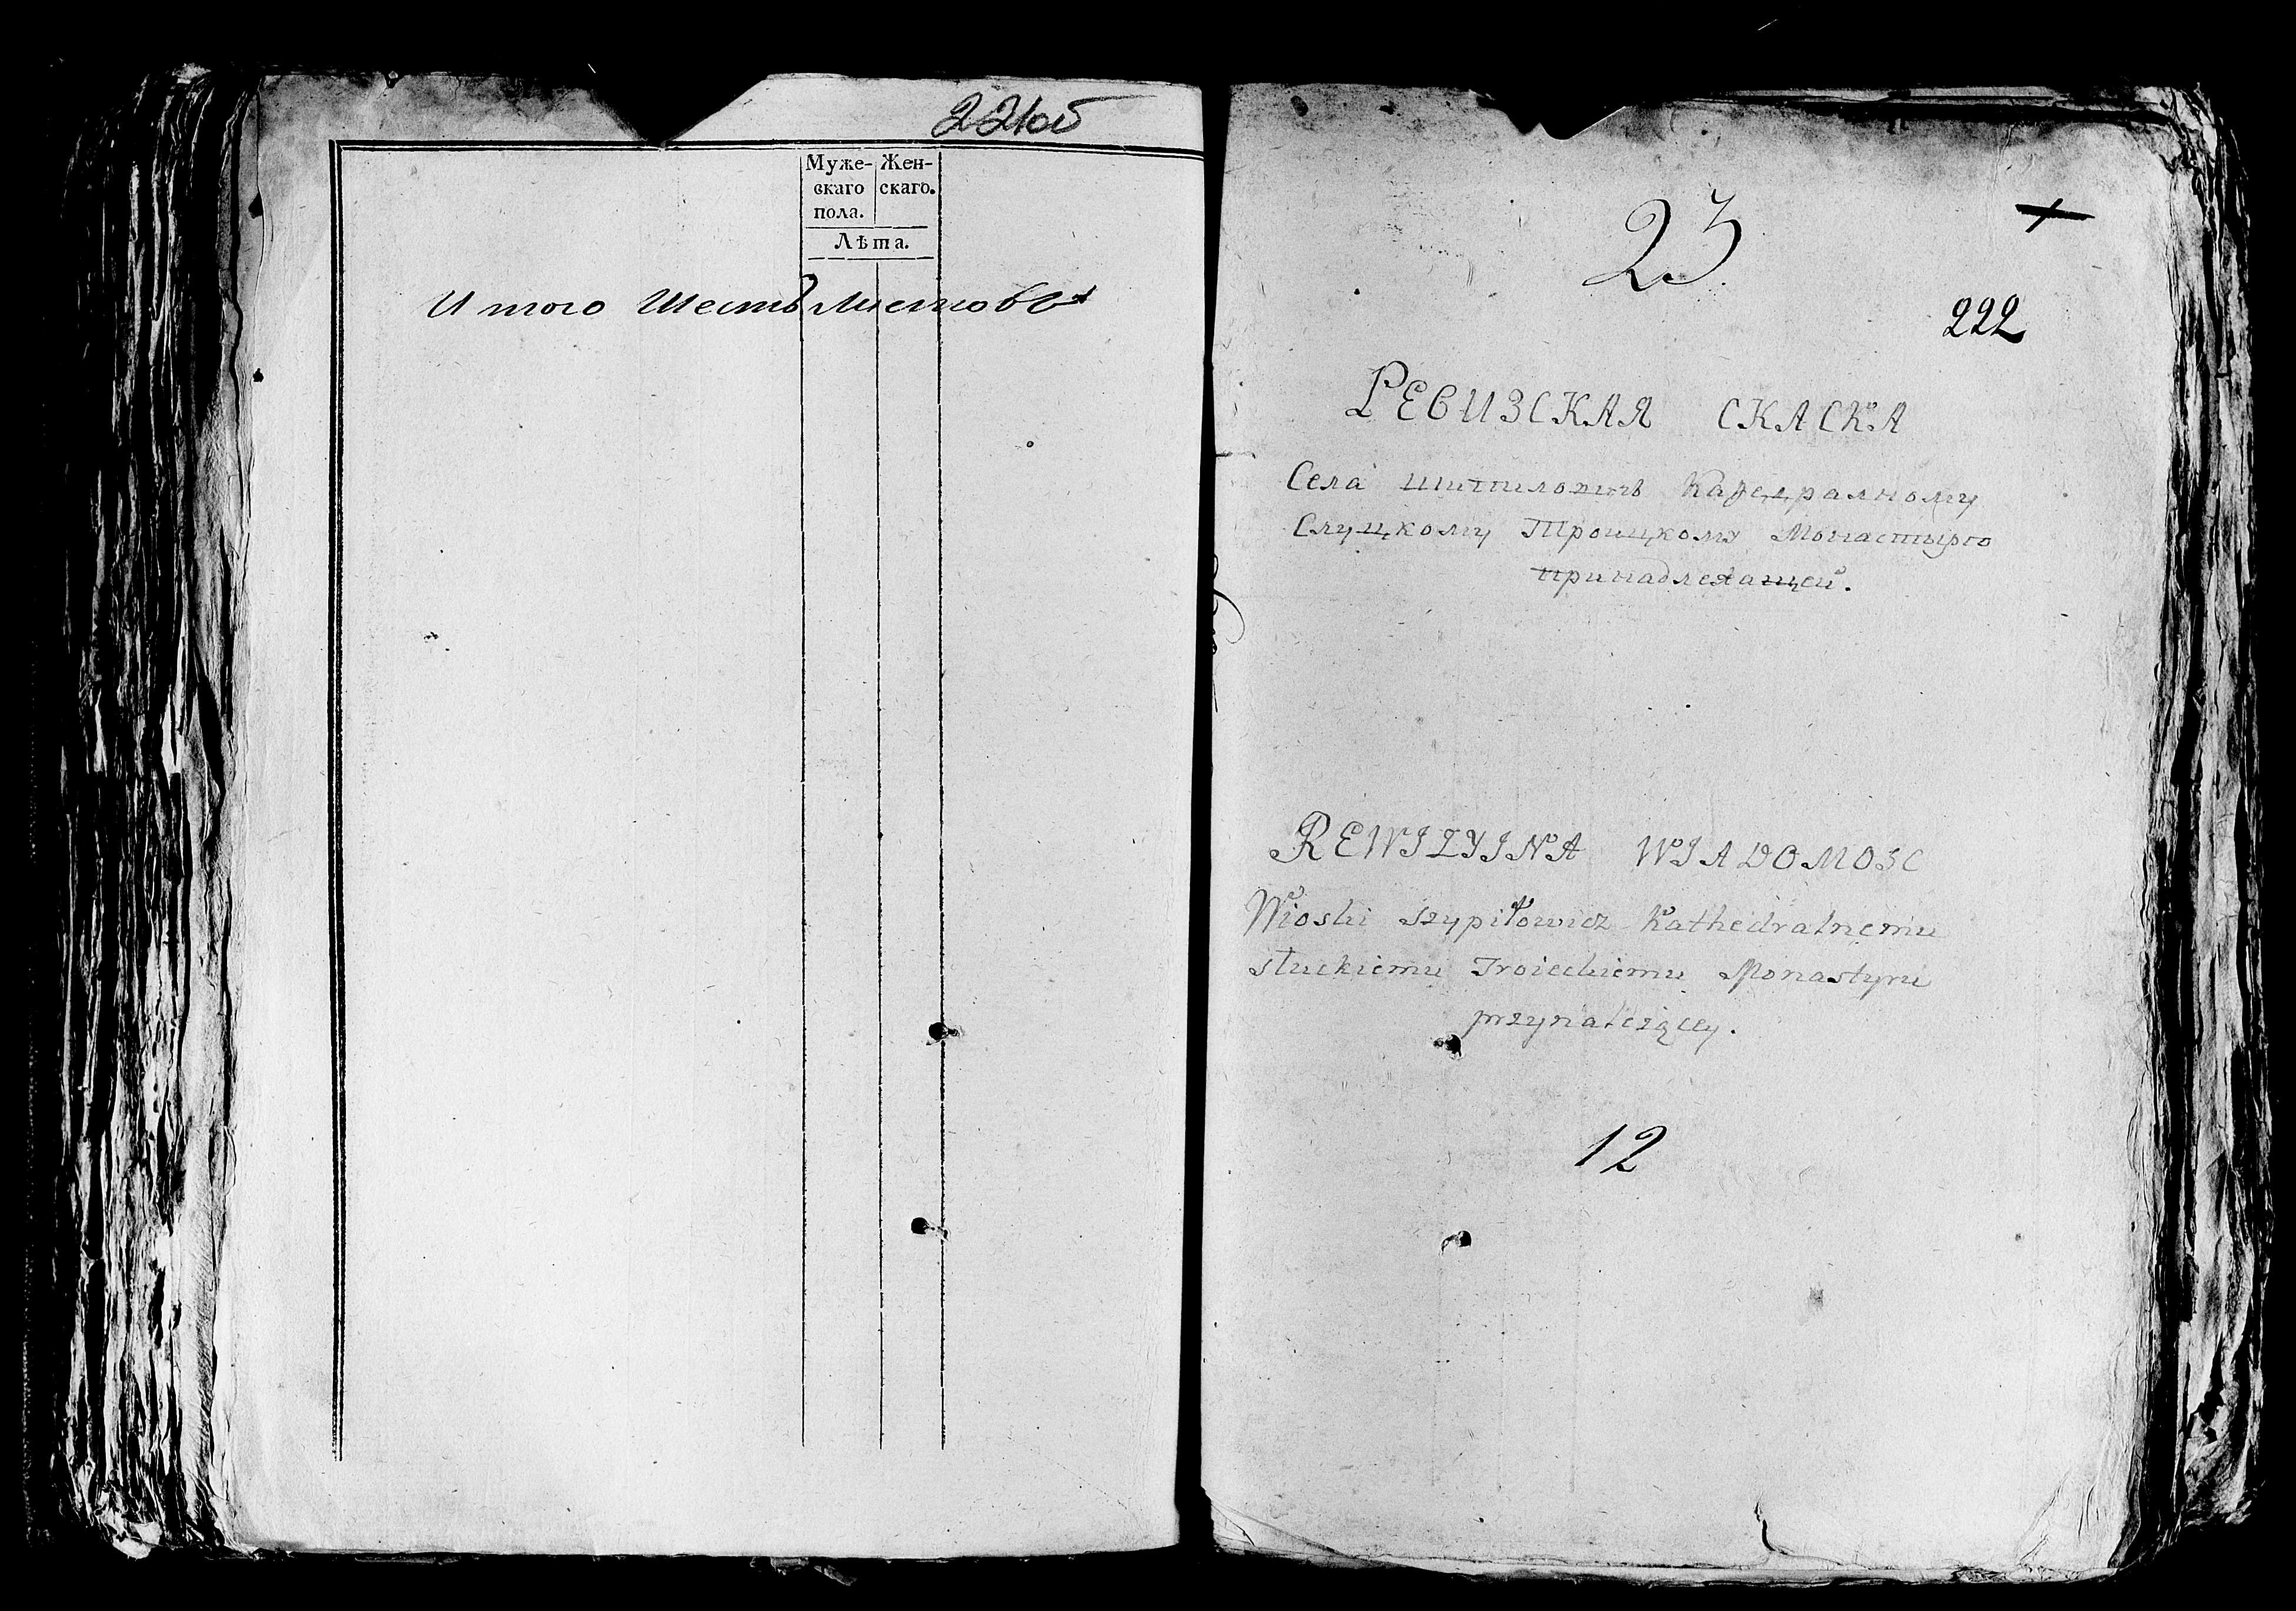 221об
Муже- Жен-
скаго скаго.
пола.
Лѣта.
И того Шесть листовъ
23
222
РЕВИЗСКАЯ СКАСКА
Села Шипиловичь Кафедралному
Слуцкому Троицкому Монастырю
принадлежащей.
REWIZYINA WIADOMOSC
Wioski Szypiłowicz Kathedralnemu
Słuckiemu Troieckiemu Monastyru
przynalezącey.
12